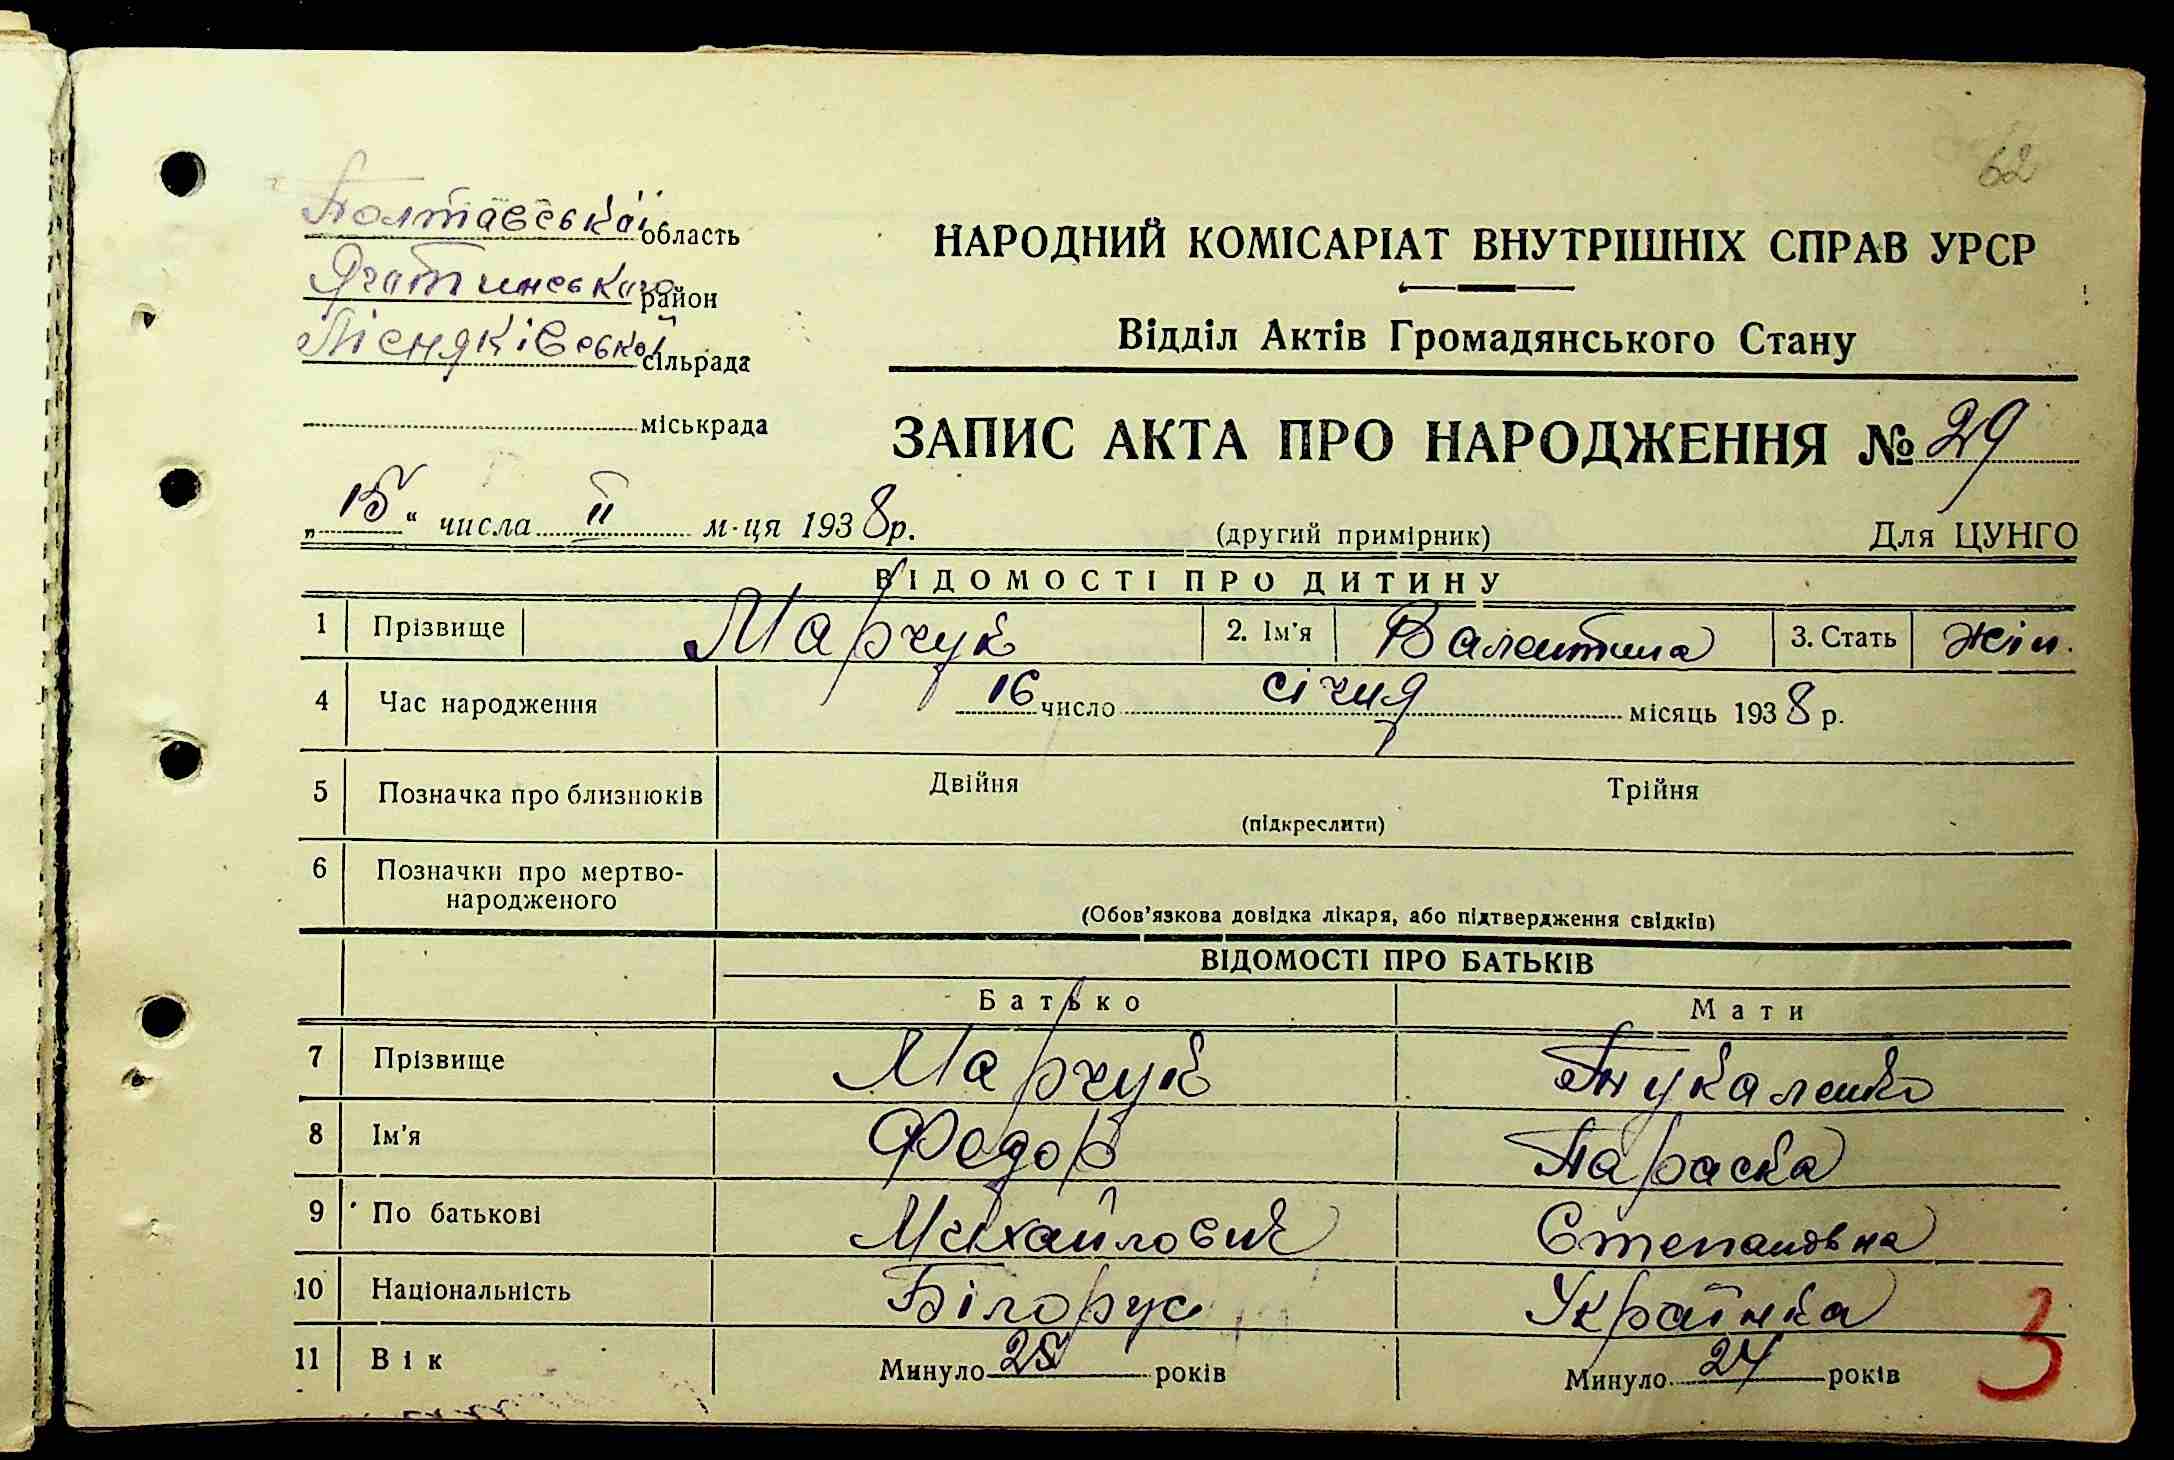 62
Полтавської область
Яготинського район
Лісняківської сільрада
міськрада
НАРОДНИЙ КОМІСАРІАТ ВНУТРІШНІХ СПРАВ УРСР
Відділ Актів Громадянського Стану
ЗАПИС АКТА ПРО НАРОДЖЕННЯ № 29
„15“ числа II м-ця 1938 р. (другий примірник) Для ЦУНГО
ВІДОМОСТІ ПРО ДИТИНУ
1 Прізвище Марчук 2. Ім'я Валентина 3. Стать жін.
4 Час народження 16 число січня місяць 1938 р.
5 Позначка про близнюків Двійня Трійня
(підкреслити)
6 Позначки про мертво-
народженого
(Обов'язкова довідка лікаря, або підтвердження свідків)
ВІДОМОСТІ ПРО БАТЬКІВ
Батько Мати
7 Прізвище Марчук
8 Ім'я Федор Параска
9 По батькові Михайлович Степановна
10 Національність Білорус Українка
11 Вік Минуло 25 років Минуло 24 років
3